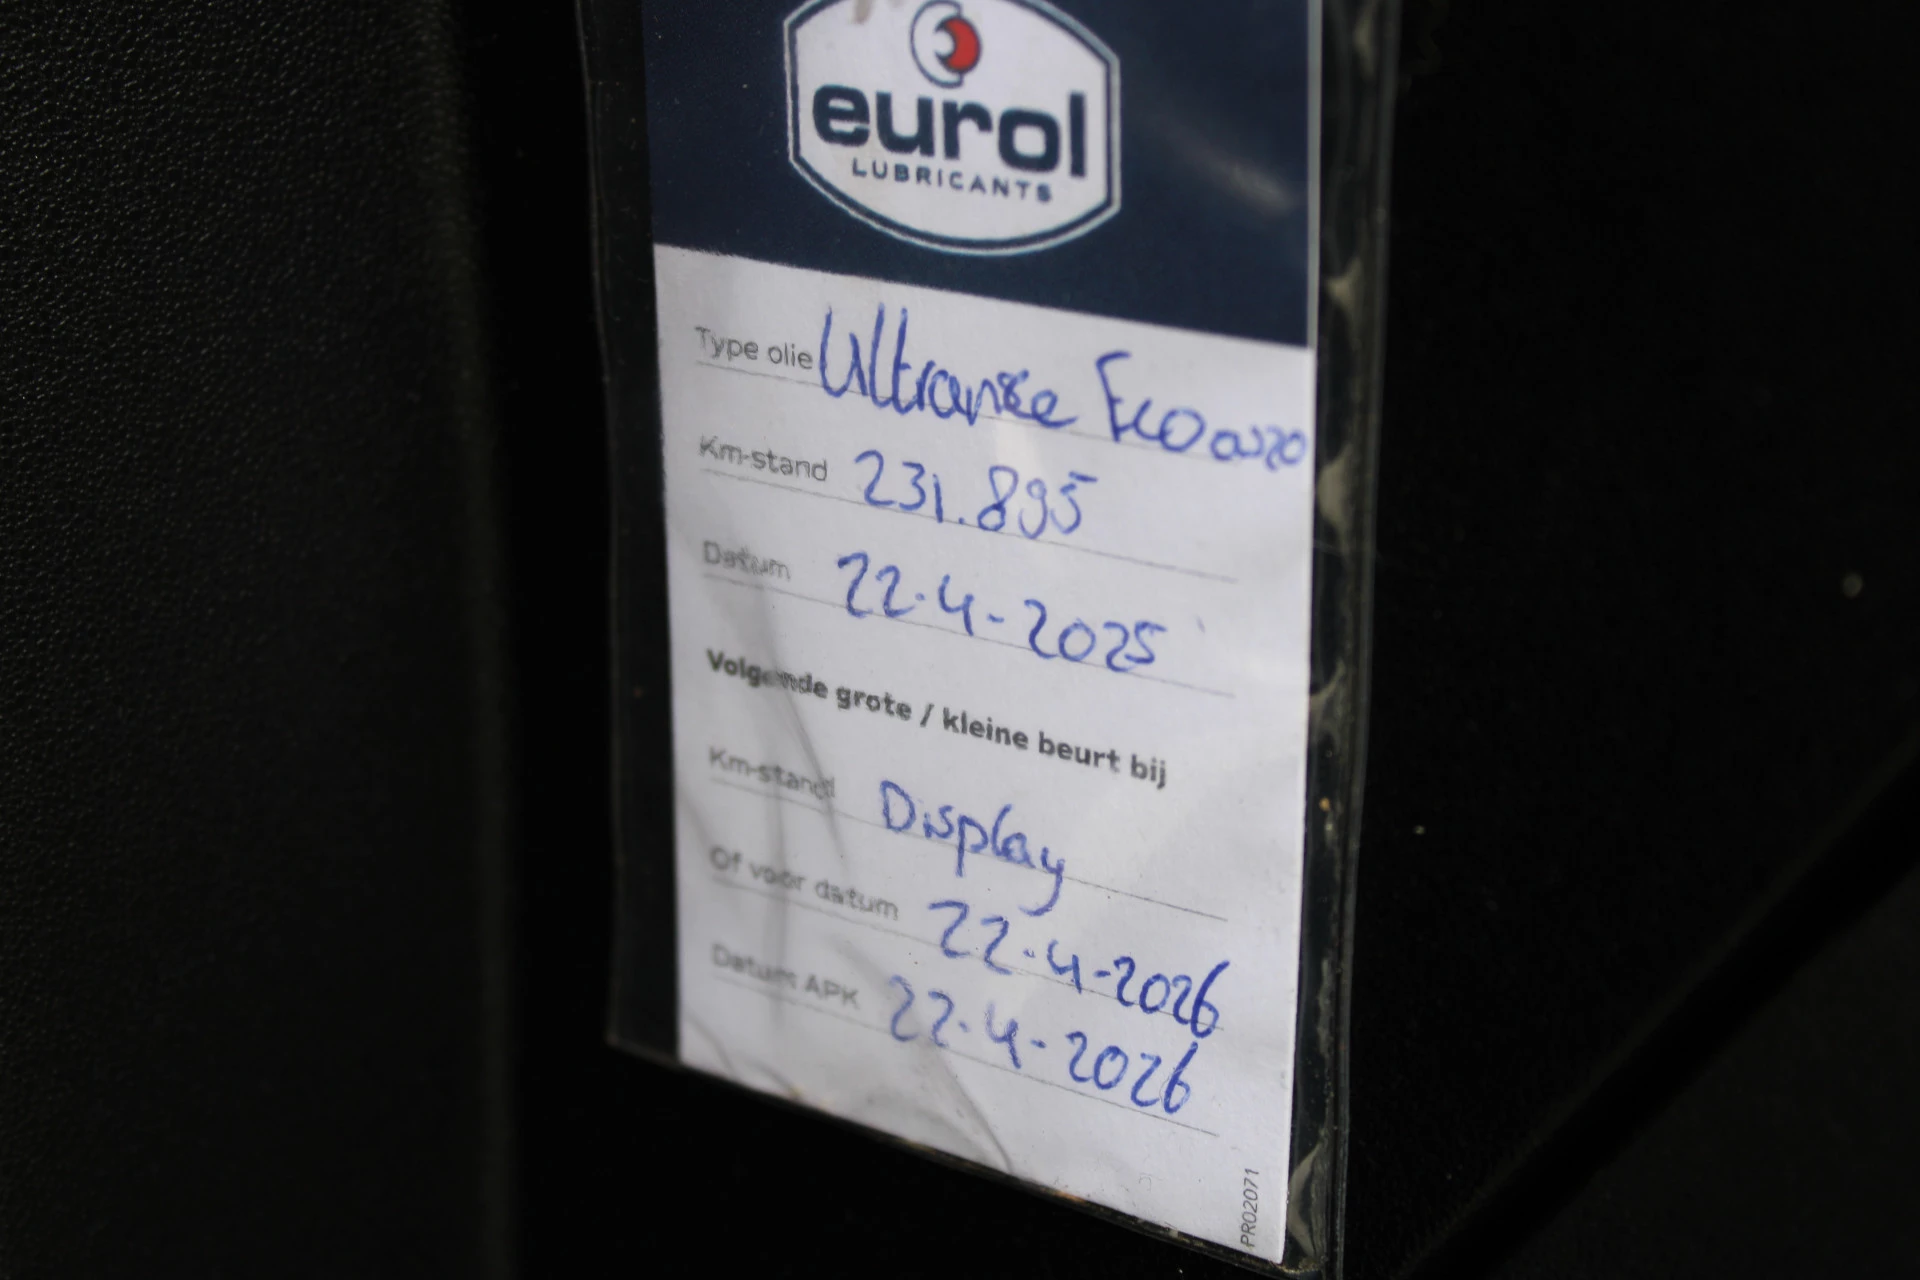 eurol
LUBRICANTS
Type olie Ultrance Eco 0W20
Km-stand 231.895
Datum 22-4-2025
Volgende grote / kleine beurt bij
Km-stand Display
Of voor datum 22-4-2026
Datum APK 22-4-2026
PR02071